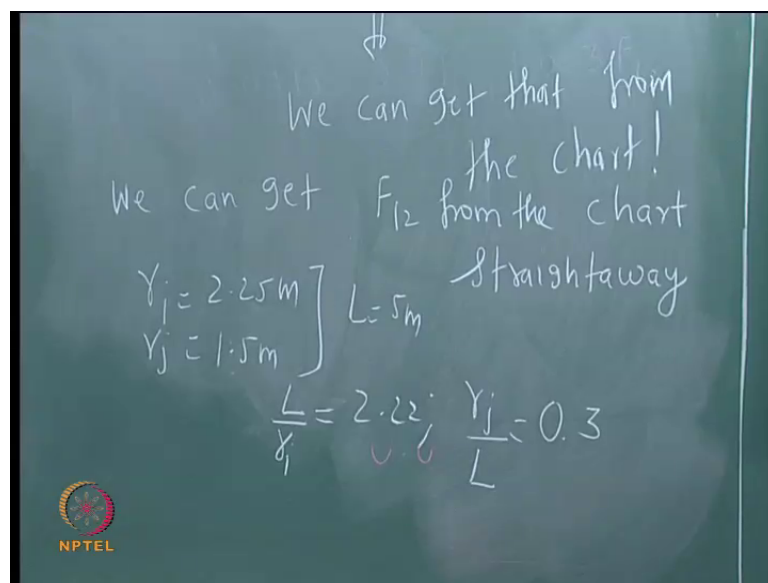 ⇓
We can get that from
the chart!
We can get F₁₂ from the chart
straightaway
rᵢ = 2.25m ] L = 5m
rⱼ = 1.5m
L/rᵢ = 2.22; rⱼ/L = 0.3
NPTEL